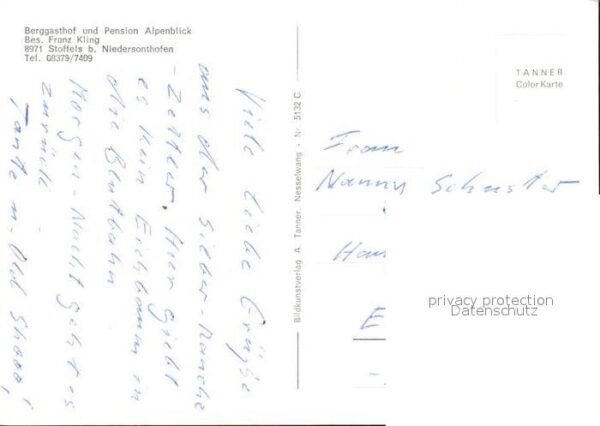 Berggasthof und Pension Alpenblick
Bes. Franz Kling
8971 Stoffels b. Niedersonthofen
Tel. 08379/7409
Viele liebe Grüße
aus der Silber-Ranche
Hier giebt
es kein Eichbaum in
die
Morgen - Nacht geht es
zurück
Tante u.
Bildkunstverlag A. Tanner, Nesselwang - Nr. 5132 C
TANNER
Color Karte
Frau
Nanny Schuster
Hau
E
privacy protection
Datenschutz